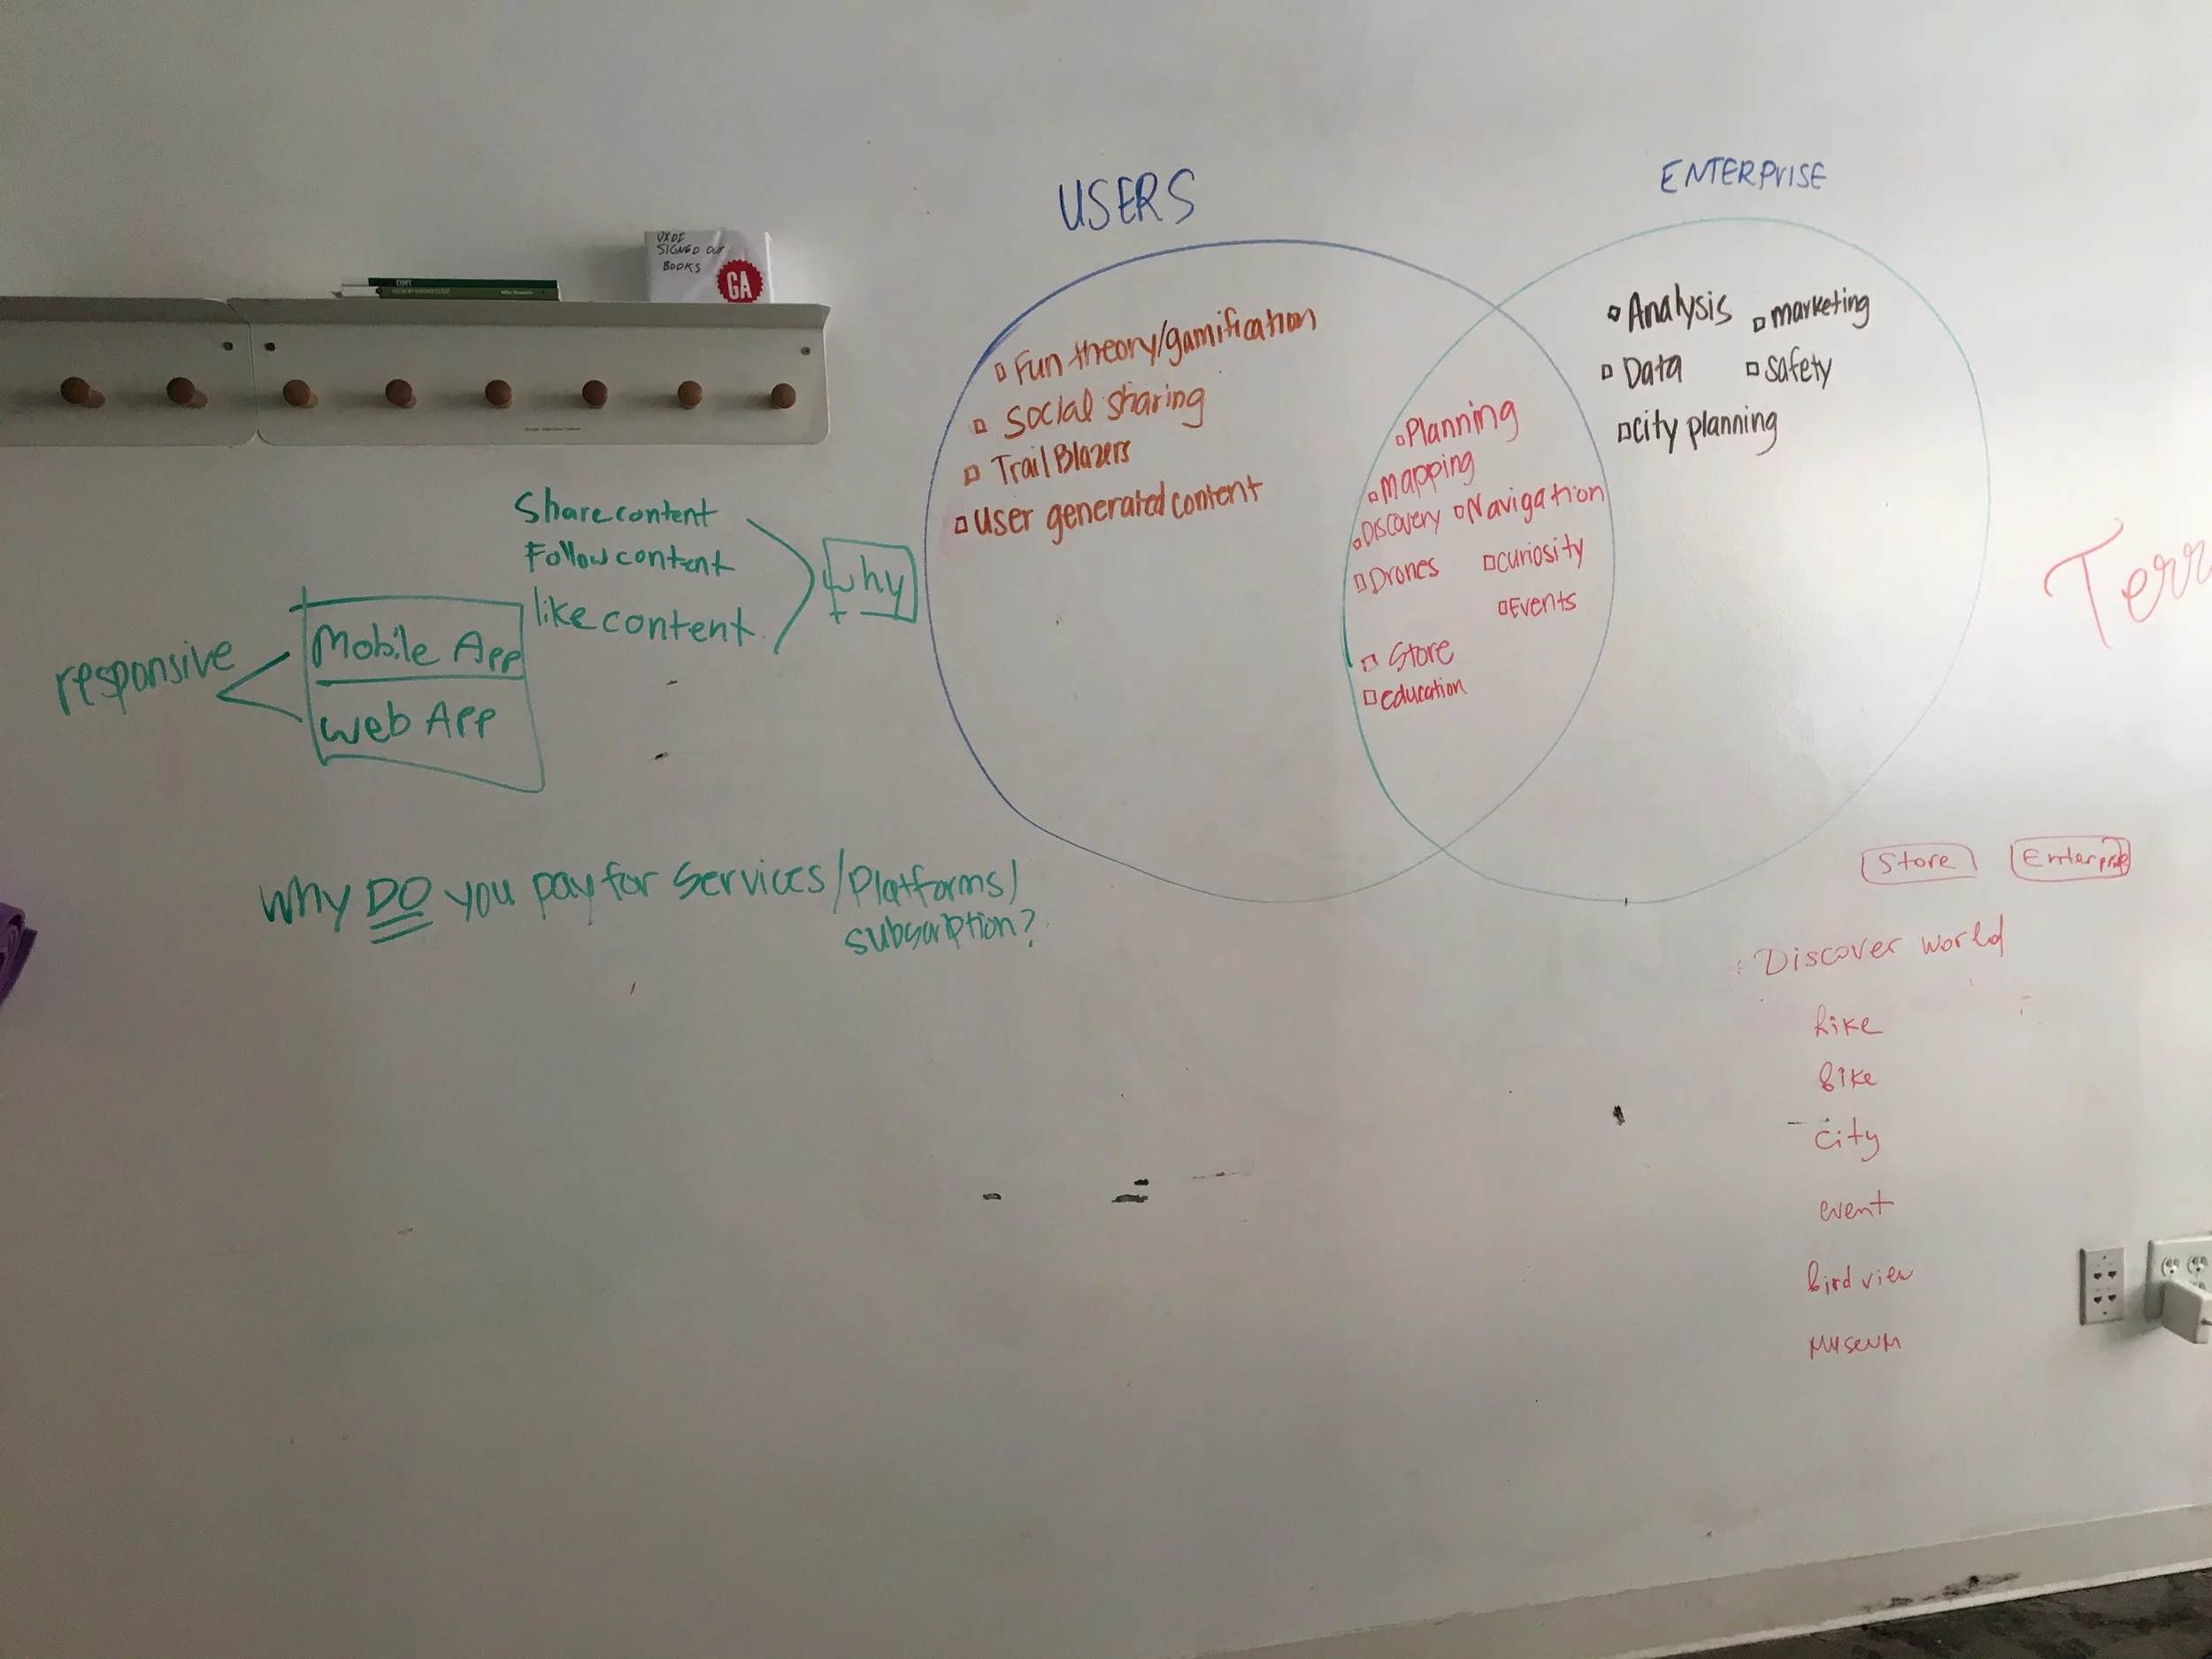 UXDI
SIGNED OUT
BOOKS
GA
responsive
Mobile App
web App
Share content
Follow content
like content
why
Why DO you pay for services/Platforms/
subscription?
USERS
Fun theory/gamification
social sharing
Trail Blazers
user generated content
Planning
mapping
Discovery
Navigation
Drones
curiosity
Events
Store
education
ENTERPRISE
Analysis
marketing
Data
safety
city planning
Terr
Store
Enterprise
Discover world
hike
bike
city
event
bird view
museum